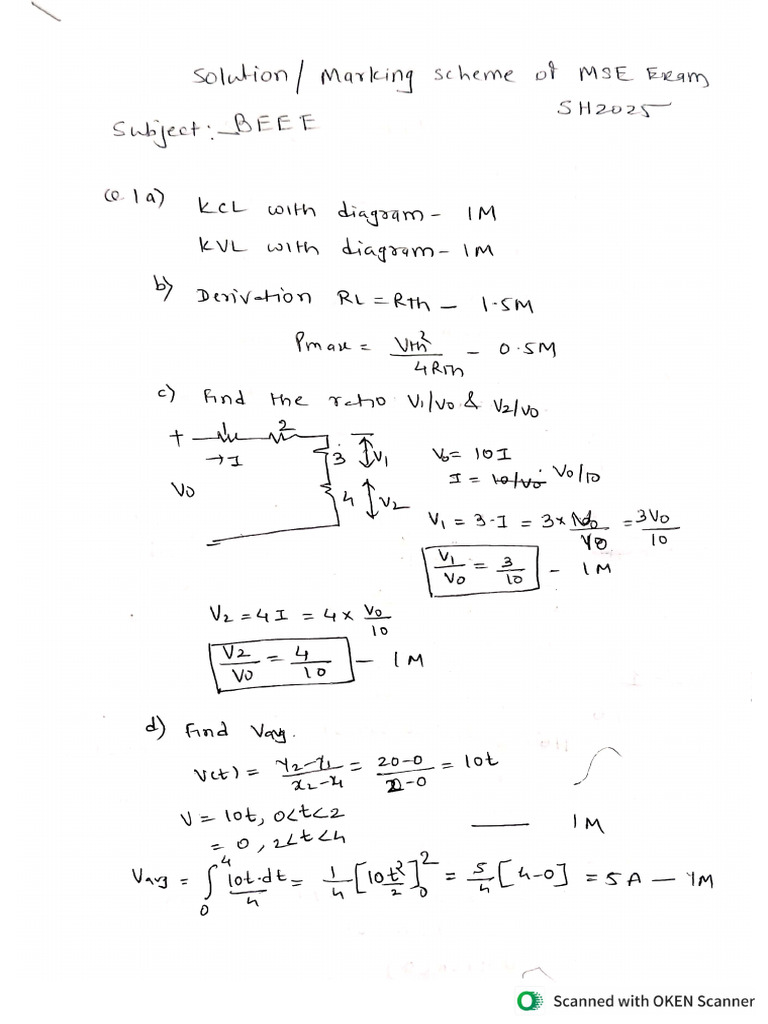 Solution/ Marking scheme of MSE Exam
SH2025
Subject:- BEEE
Q.1a) KCL with diagram - 1M
KVL with diagram - 1M
b) Derivation RL = Rth - 1.5M
Pmax = Vth²/4Rth - 0.5M
c) Find the ratio V1/V0 & V2/V0
+ 1 2
→I
3 V1
V0
4 V2
V0 = 10I
I = 10/V0 V0/10
V1 = 3·I = 3 × V0/10 = 3V0/10
V1/V0 = 3/10 - 1M
V2 = 4I = 4 × V0/10
V2/V0 = 4/10 - 1M
d) Find Vavg.
V(t) = Y2-Y1/x2-x1 = 20-0/2-0 = 10t
V = 10t, 0<t<2
= 0, 2<t<4
1M
Vavg = ∫₀⁴ 10t·dt/4 = 1/4 [10t²/2]₀² = 5/4 [4-0] = 5A - 1M
Scanned with OKEN Scanner